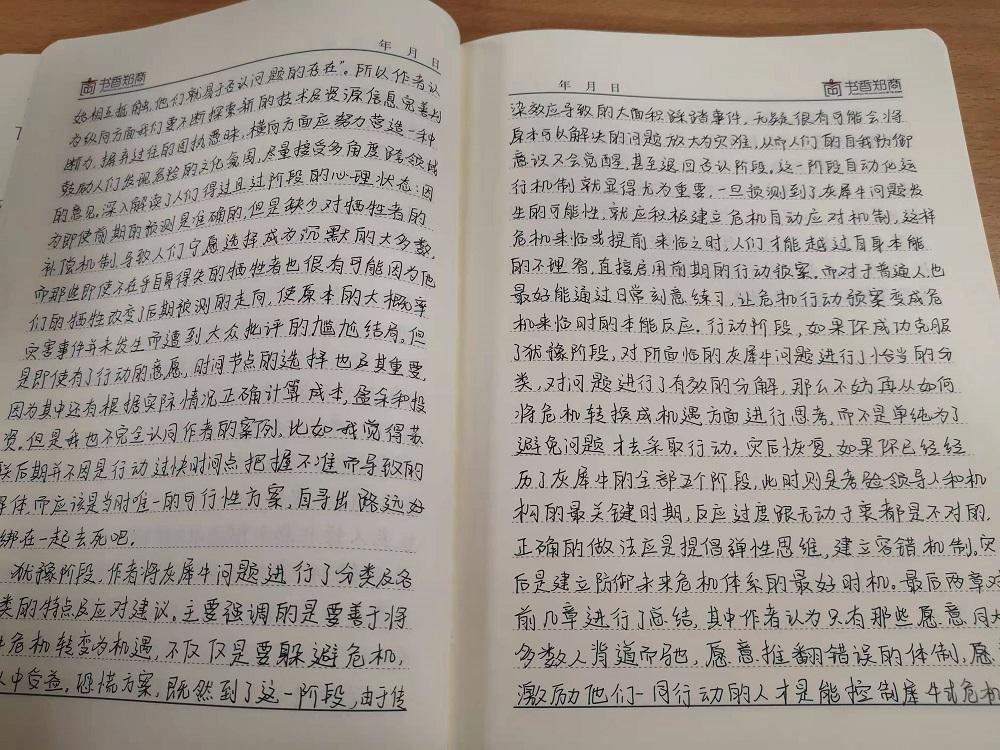 年 月 日
书香知商
始相互抵触，他们就易于否认问题的存在"。所以作者认
为纵向方面我们要不断探索新的技术及资源信息完善判
断力，摒弃过往的固执愚昧，横向方面应努力营造一种
鼓励人们发现危险的文化氛围，尽量接受多角度跨领域
的意见。深入解读了人们得过且过阶段的心理状态：因
为即使前期的预测是准确的，但是缺少对牺牲者的
补偿机制，导致人们宁愿选择成为沉默的大多数，
而那些即使不在乎自身得失的牺牲者也很有可能因为他
们的牺牲改变了后期被测的走向，使原本的大概率
灾害事件并未发生而遭到大众批评的尴尬结局。但
是即使有了行动的意愿，时间节点的选择也及其重要，
因为其中还有根据实际情况正确计算成本，盈余和投
资。但是我也不完全认同作者的案例，比如我觉得苏
联后期并不因是行动过快时间点把握不准而导致的
解体，而应该是当时唯一的可行性方案，自寻出路远为
绑在一起去死吧。
犹豫阶段，作者将灰犀牛问题进行了分类及各
类的特点及应对建议。主要强调的是要善于将
危机转变为机遇，不仅仅是要躲避危机，
从中受益。恐慌方案，既然到了这一阶段，由于传
年 月 日
书香知商
染效应导致的大面积踩踏事件，无疑很有可能会将
原本可以解决的问题放大为灾难，从而人们的自我防御
意识不会觉醒，甚至退回否认阶段，这一阶段自动化运
行机制就显得尤为重要，一旦被测到了灰犀牛问题发
生的可能性，就应积极建立危机自动应对机制，这样
危机来临或提前来临之时，人们才能越过自身本能
的不理智，直接启用前期的行动预案。而对于普通人也
最好能通过日常刻意练习，让危机行动预案变成危
机来临时的本能反应。行动阶段，如果你成功克服
了犹豫阶段，对所面临的灰犀牛问题进行了恰当的分
类，对问题进行了有效的分解，那么不妨再从如何
将危机转换成机遇方面进行思考，而不是单纯为了
避免问题才去采取行动。灾后恢复，如果你已经经
历了灰犀牛的全部五个阶段，此时则是考验领导人和机
构的最关键时期，反应过度跟无动于衷都是不对的，
正确的做法应是提倡弹性思维，建立容错机制。灾
后是建立防御未来危机体系的最好时机。最后两章对
前几章进行了总结，其中作者认为只有那些愿意同大
多数人背道而驰，愿意推翻错误的体制，愿
激励他们一同行动的人才是能控制犀牛式危机